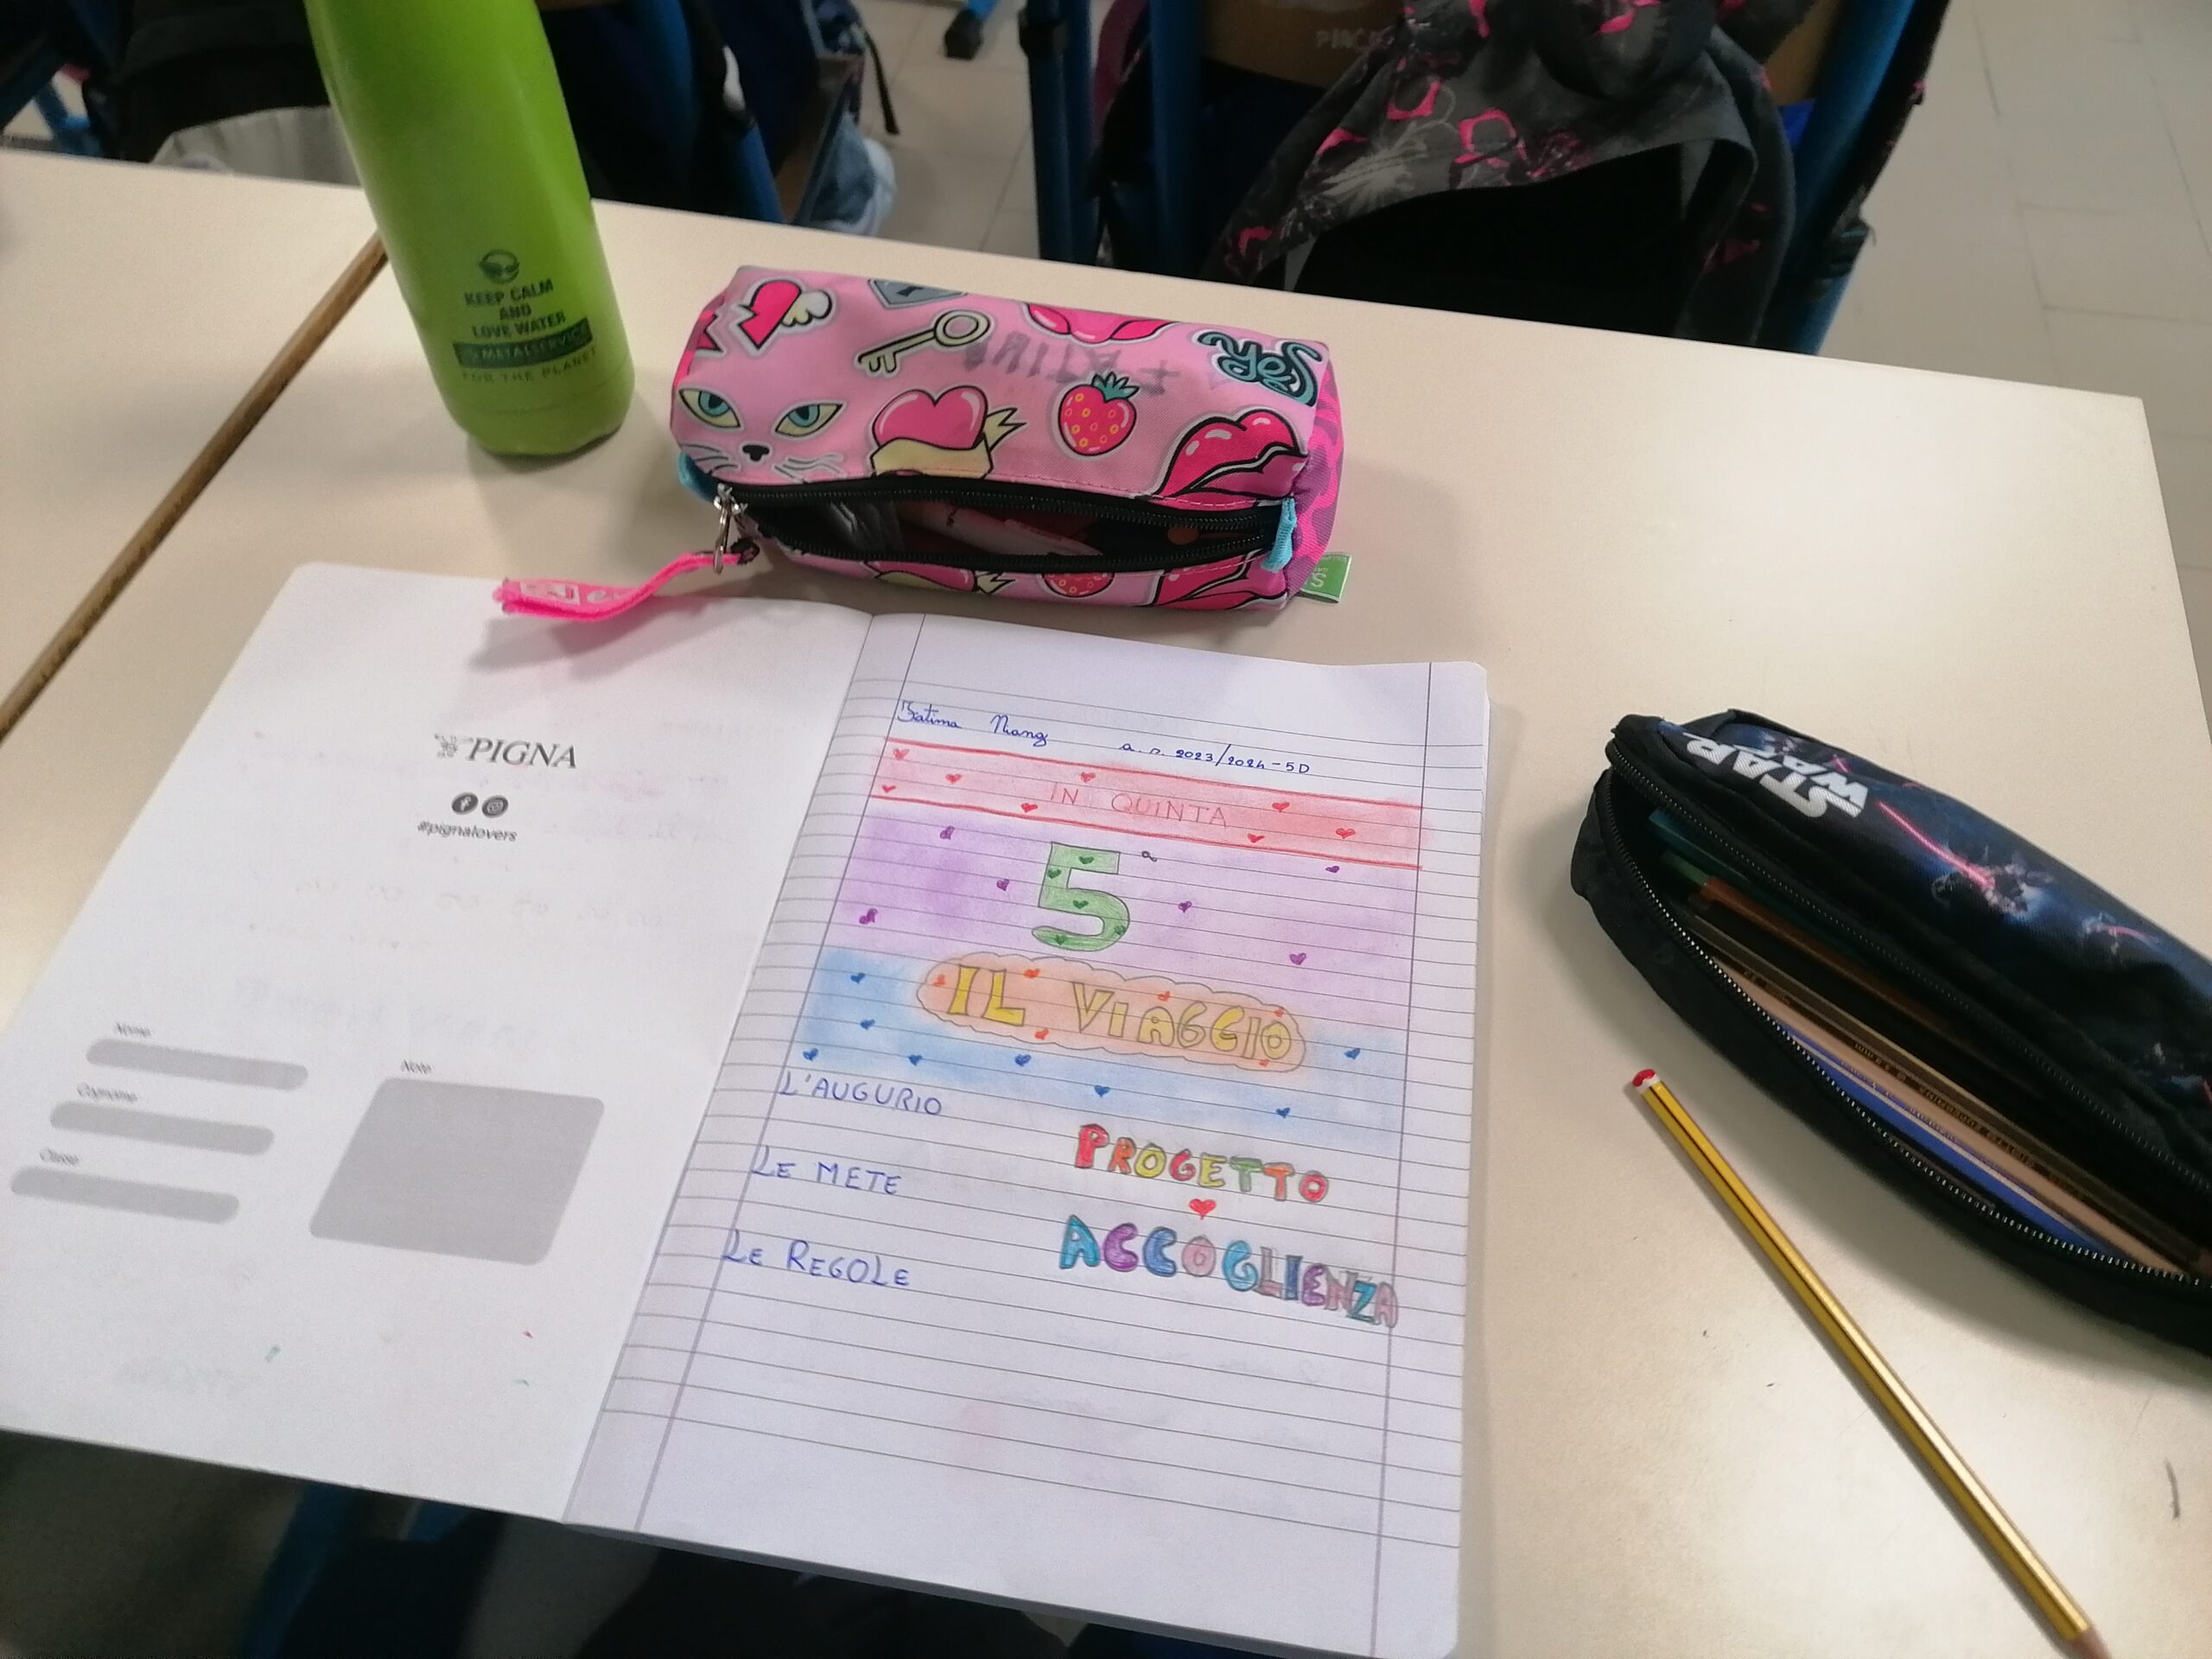 KEEP CALM
AND
LOVE WATER
METALSERVICE
FOR THE PLANET
yes
STAR
WAR
PIGNA
#pignalovers
Nome
Cognome
Classe
Note
Fatima Nhang a. s. 2023/2024-5D
IN QUINTA
5ª
IL VIAGGIO
L'AUGURIO
PROGETTO
LE METE
ACCOGLIENZA
LE REGOLE